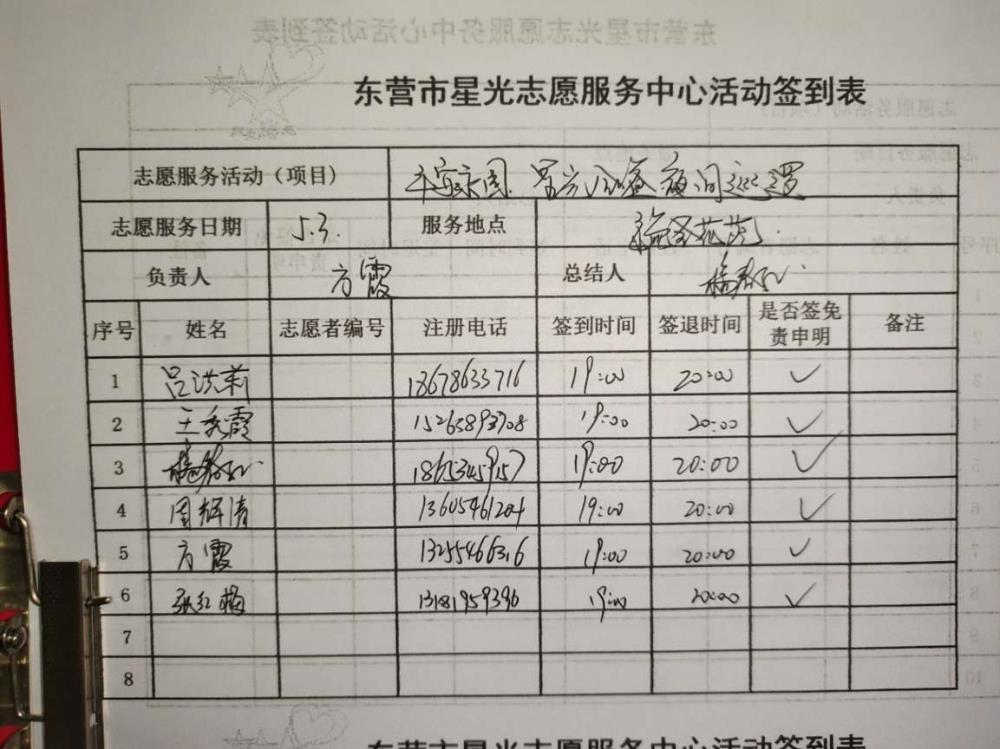 东营市星光志愿服务中心活动签到表
志愿服务活动（项目） 平安家园 星光公益夜间巡逻
志愿服务日期 5.3. 服务地点
负责人 方霞 总结人
序号 姓名 志愿者编号 注册电话 签到时间 签退时间 是否签免责申明 备注
1 吕洪莉 18678633716 19:00 20:00 ✓
2 王秀霞 15265893708 19:00 20:00 ✓
3 18653459157 19:00 20:00 ✓
4 周辉清 13605461204 19:00 20:00 ✓
5 方霞 13255466316 19:00 20:00 ✓
6 张红梅 13181959396 19:00 20:00 ✓
7
8
东营市星光志愿服务中心活动签到表